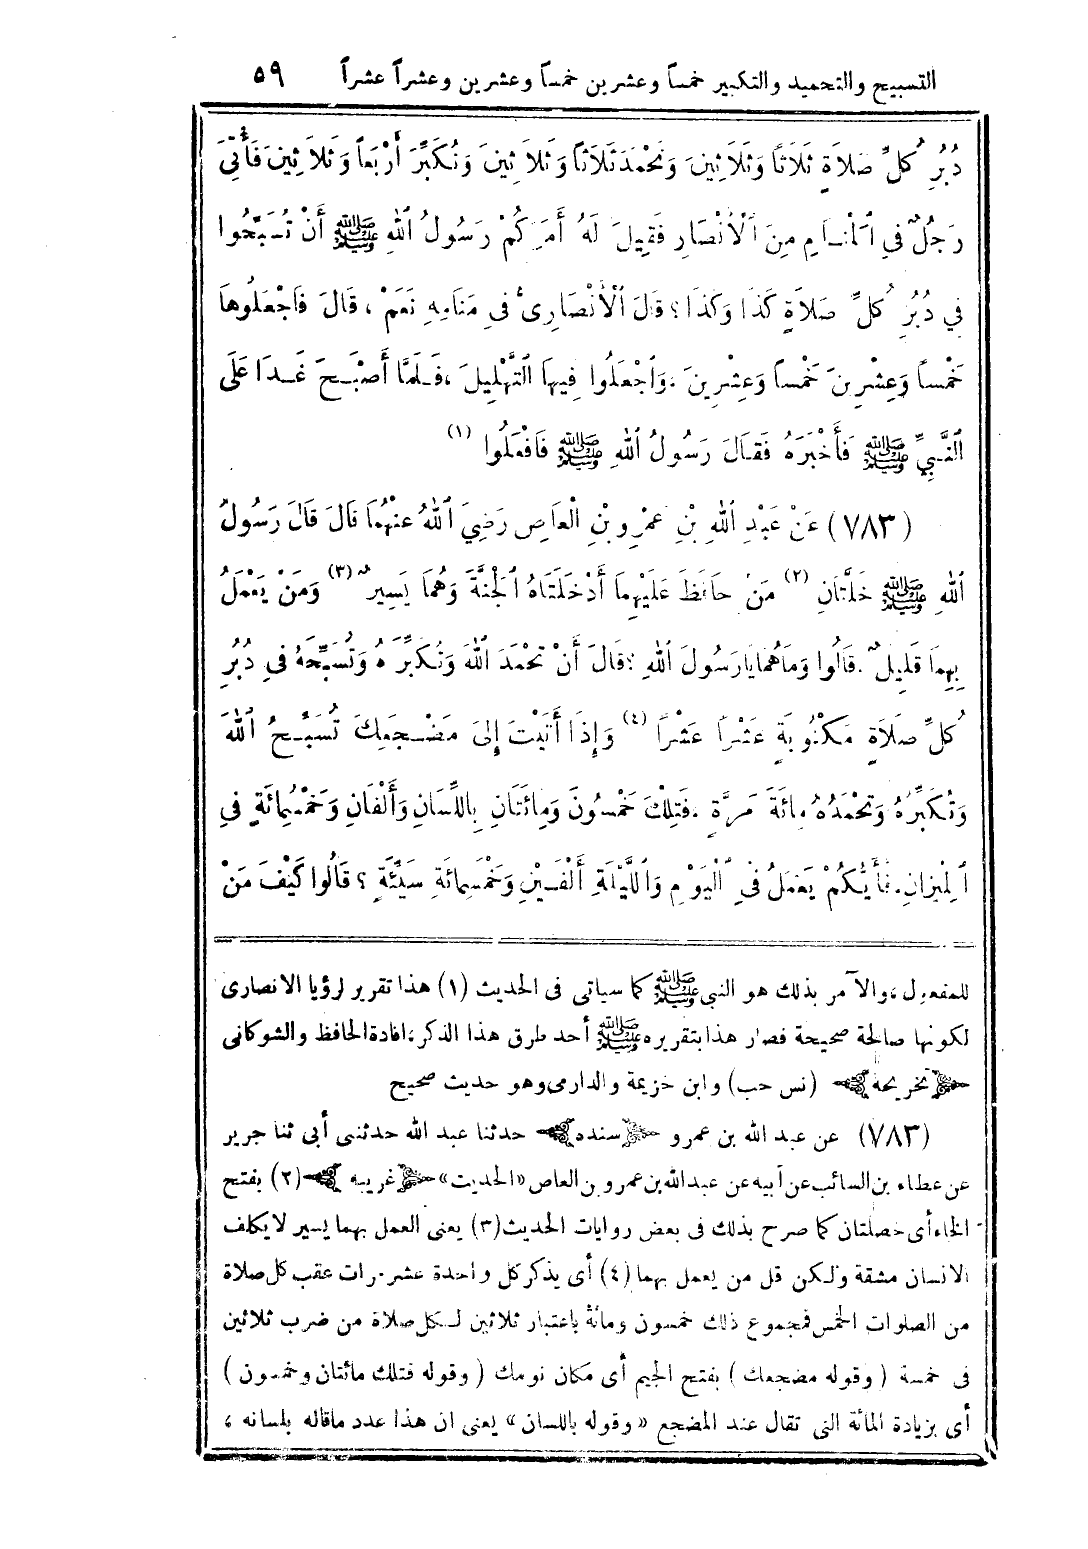 التسبيح والتحميد والتكبير خمساً وعشرين خمساً وعشرين وعشراً عشراً ٥٩
دُبُرِ كُلِّ صَلاَةٍ ثَلاَثَاً وَثَلاَثِينَ وَنَحْمَدَ ثَلاَثَاً وَثَلاَثِينَ وَنُكَبِّرَ أَرْبَعاً وَثَلاَثِينَ فَأُتِيَ
رَجُلٌ فِي اَلْمَنَامِ مِنَ اَلْأَنْصَارِ فَقِيلَ لَهُ أَمَرَكُمْ رَسُولُ اَللهِ ﷺ أَنْ تُسَبِّحُوا
فِي دُبُرِ كُلِّ صَلاَةٍ كَذَا وَكَذَا؟ قَالَ اَلْأَنْصَارِىُّ فِي مَنَامِهِ نَعَمْ ، قَالَ فَاجْعَلُوهَا
خَمْساً وَعِشْرِينَ خَمْساً وَعِشْرِينَ ،وَاجْعَلُوا فِيهاَ التَّهْلِيلَ ،فَلَمَّا أَصْبَحَ غَدَا عَلَى
اَلنَّبِيِّ ﷺ فَأَخْبَرَهُ فَقَالَ رَسُولُ اَللهِ ﷺ فَافْعَلُوا (١)
(٧٨٣) عَنْ عَبْدِ اَللهِ بْنِ عَمْرِو بْنِ الْعَاصِ رَضِيَ اَللهُ عَنْهُمَا قَالَ قَالَ رَسُولُ
اَللهِ ﷺ خَلَّتَانِ (٢) مَنْ حَافَظَ عَلَيْهِمَا أَدْخَلَتَاهُ اَلْجَنَّةَ وَهُمَا يَسِيرٌ (٣) وَمَنْ يَعْمَلُ
بِهِمَا قَلِيلٌ .قَالُوا وَمَاهُمَا يَارَسُولَ اَللهِ ؟قَالَ أَنْ تَحْمَدَ اَللهَ وَتُكَبِّرَهُ وَتُسَبِّحَهُ فِي دُبُرِ
كُلِّ صَلاَةٍ مَكْتُوبَةٍ عَشْراً عَشْراً (٤) وَإِذَا أَتَيْتَ إِلىَ مَضْجَعِكَ تُسَبِّحُ اَللهَ
وَتُكَبِّرُهُ وَتَحْمَدُهُ مِائَةَ مَرَّةٍ .فَتِلْكَ خَمْسُونَ وَمِائَتَانِ بِاللِّسَانِ وَأَلْفَانِ وَخَمْسُمِائَةٍ فِي
اَلْمِيزَانِ.فَأَيُّكُمْ يَعْمَلُ فِي اَلْيَوْمِ وَاللَّيْلَةِ أَلْفَيْنِ وَخَمْسَمِائَةِ سَيِّئَةٍ ؟ قَالُوا كَيْفَ مَنْ
للمفعول ،والآمر بذلك هو النبي ﷺ كما سياتى فى الحديث (١) هذا تقرير لرؤيا الانصارى
لكونها صالحة صحيحة فصار هذا بتقريره ﷺ أحد طرق هذا الذكر،افادة الحافظ والشوكانى
تخريجه (نس حب) وابن خزيمة والدارمى وهو حديث صحيح
(٧٨٣) عن عبد الله بن عمرو سنده حدثنا عبد الله حدثنى أبى ثنا جرير
عن عطاء بن السائب عن أبيه عن عبد الله بن عمرو بن العاص «الحديث» غريبه (٢) بفتح
الخاء أى خصلتان كما صرح بذلك فى بعض روايات الحديث (٣) يعنى العمل بهما يسير لا يكلف
الانسان مشقة ولكن قل من يعمل بهما (٤) أى يذكر كل واحدة عشر مرات عقب كل صلاة
من الصلوات الخمس فمجموع ذلك خمسون ومائة باعتبار ثلاثين لكل صلاة من ضرب ثلاثين
فى خمسة ( وقوله مضجعك ) بفتح الجيم أى مكان نومك ( وقوله فتلك مائتان وخمسون )
أى بزيادة المائة التى تقال عند المضجع «وقوله باللسان» يعنى ان هذا عدد ماقاله بلسانه ،